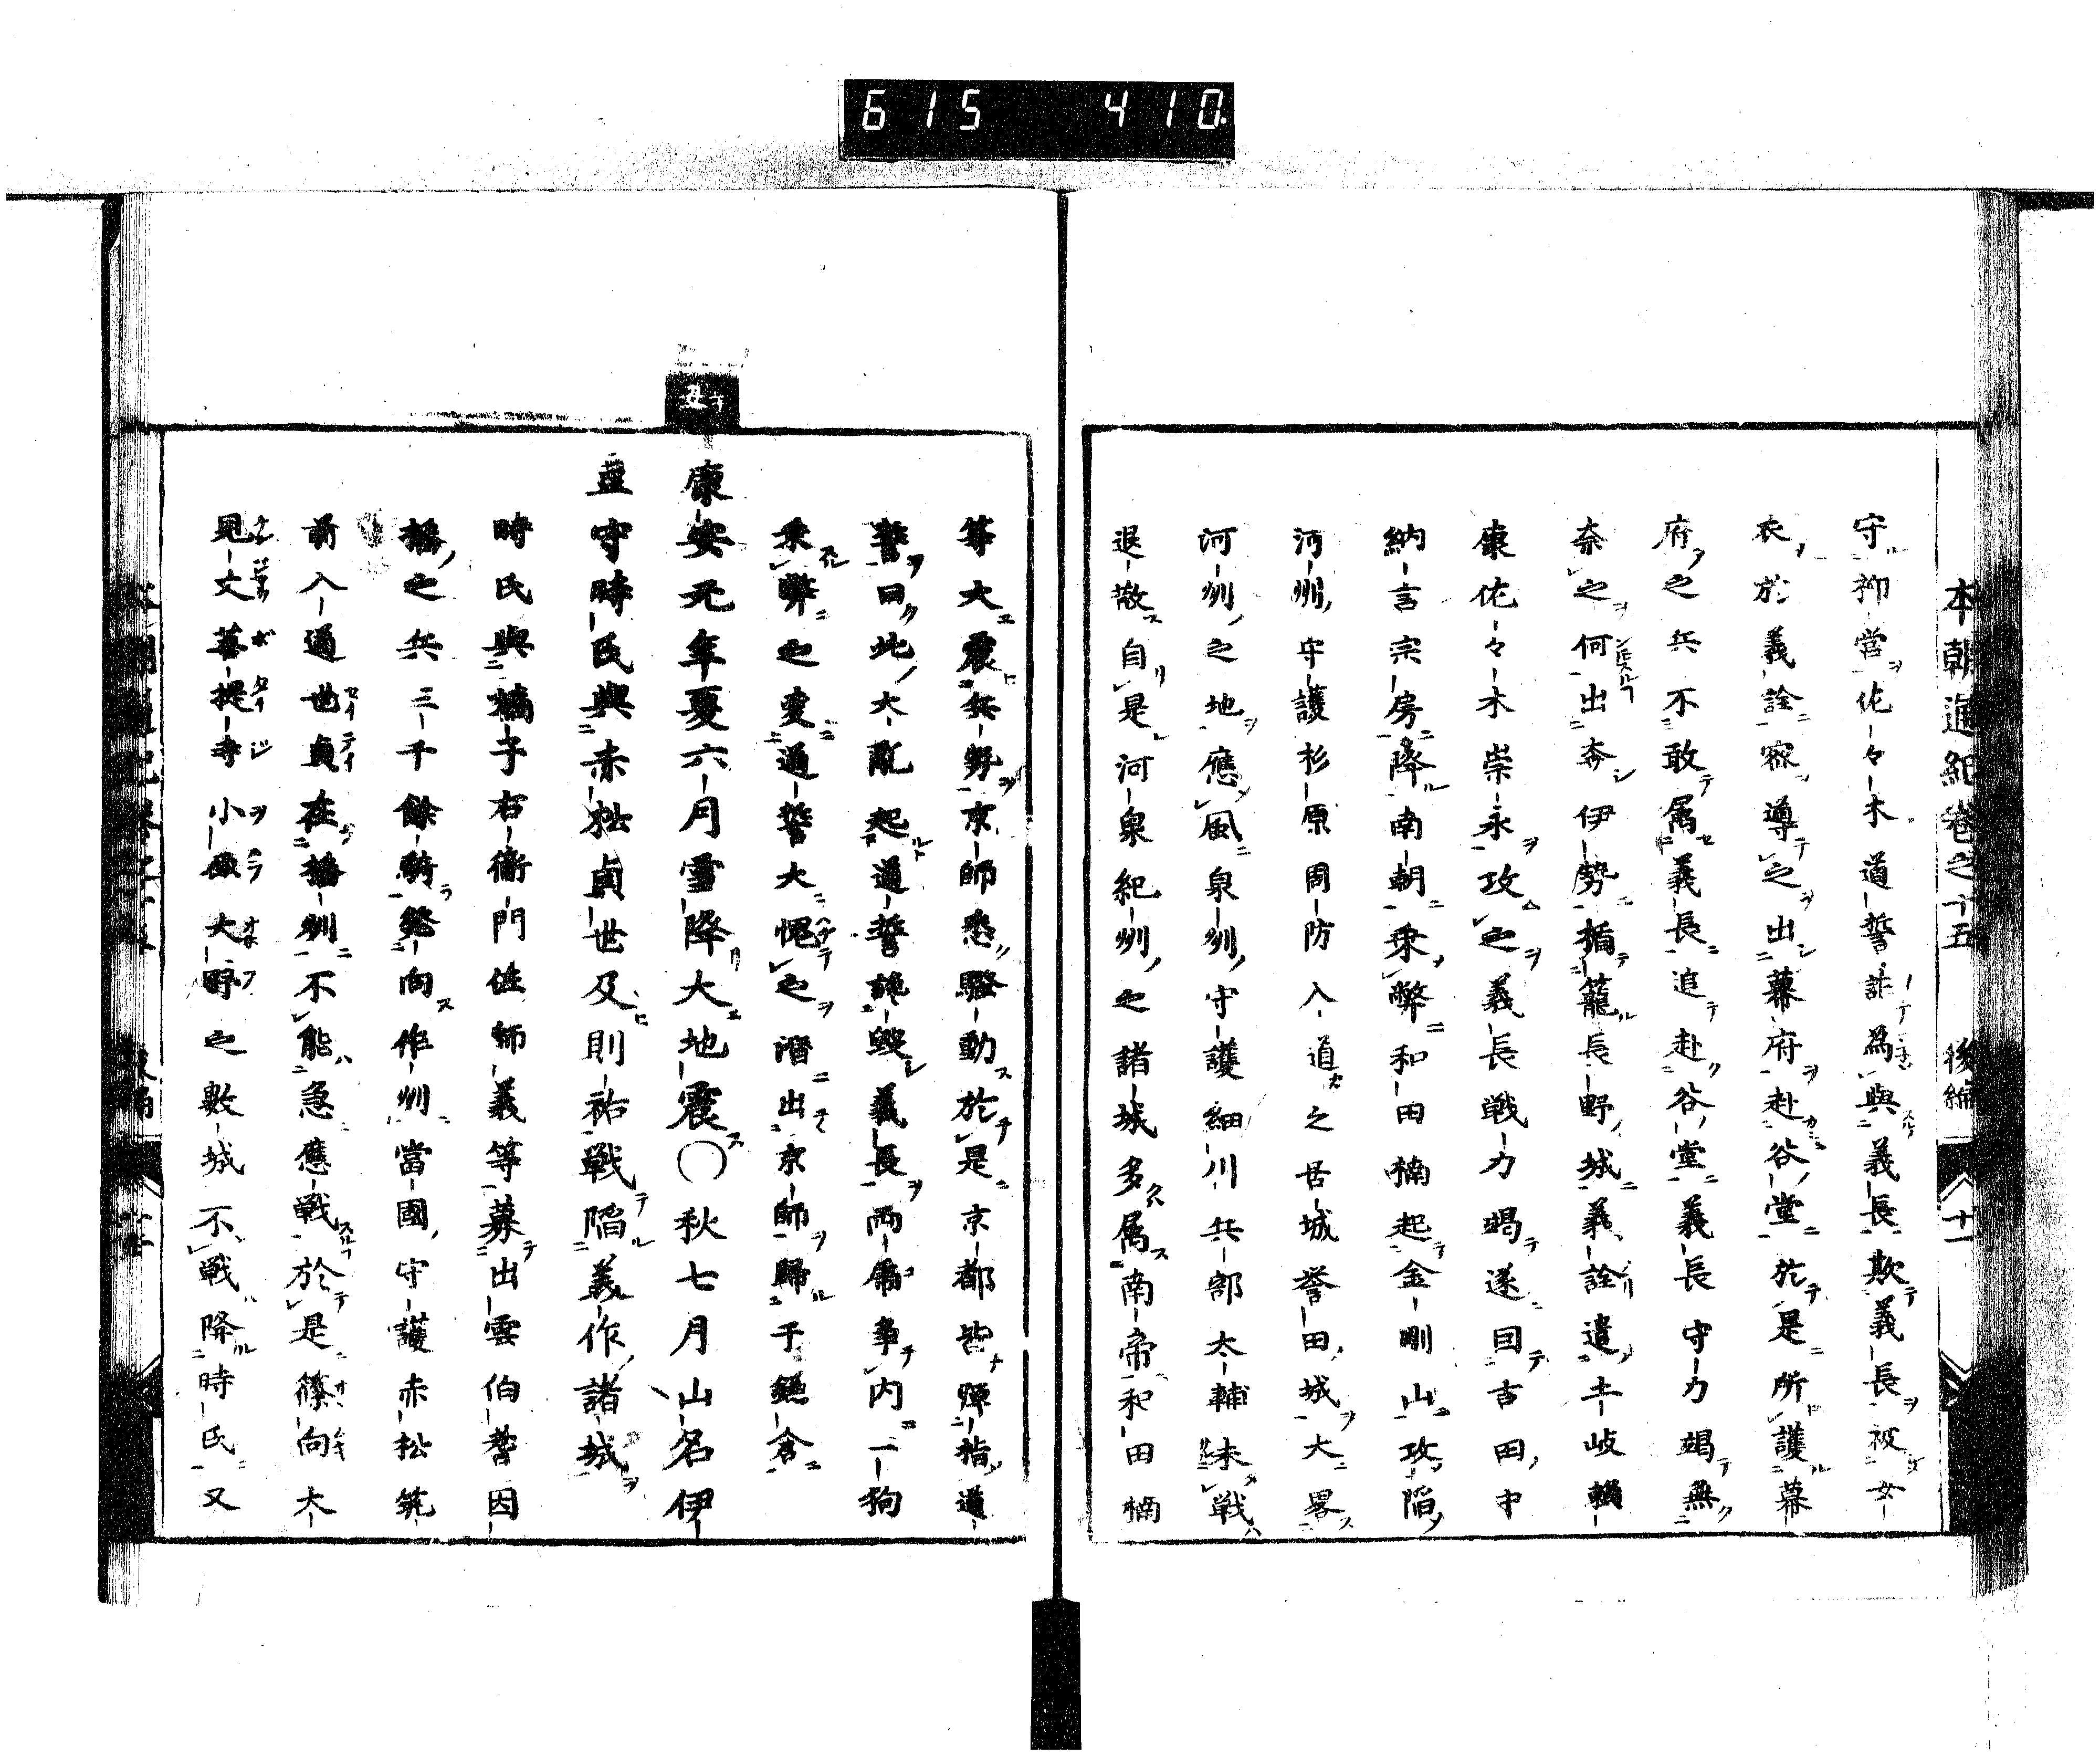 615 410
本朝通紀卷之十五 後編 十一
守御営佐々木道誉詐為與義長欺義長被女
衣於義詮密導之出幕府赴谷堂於是所護幕
府之兵不敢属義長追赴谷堂義長守力竭無
奈之何出奔伊勢楯籠長野城義詮遣土岐頼
康佐々木崇永攻之義長戦力竭遂囙吉田中
納言宗房降南朝乗弊和田楠起金剛山攻陥
河州守護杉原周防入道之居城誉田城大畧
河州之地應風泉州守護細川兵部太輔未戦
退散自是河泉紀州之諸城多属南帝和田楠
等大震兵勢京師悉騒動於是京都皆憚指道
誉曰此大亂起道誉讒毀義長両雋争内一狗
乗弊之変道誉大愧之潜出京師歸于鎌倉
丑 康安元年夏六月雪降大地震〇秋七月山名伊
豆守時氏與赤松貞世及則祐戦陥義作諸城
時氏與嫡子右衛門佐師義等募出雲伯耆因
播之兵三千餘騎発向作州當國守護赤松筑
前入道世貞在播州不能急應戦於是篠向大
見丈菩提寺小原大野之數城不戦降時氏又